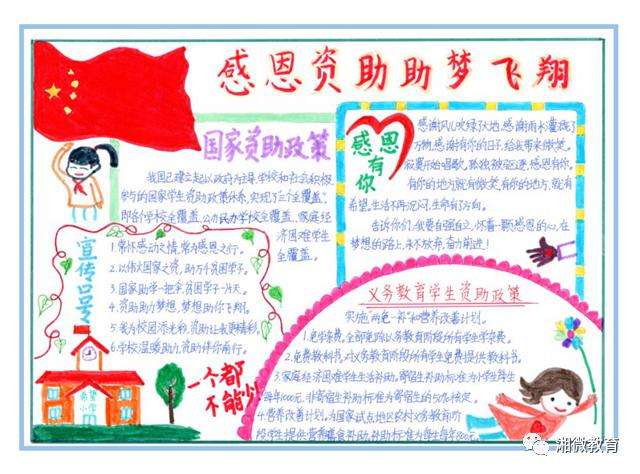 感恩资助助梦飞翔
国家资助政策
我国已建立起以政府为主导、学校和社会积极
参与的国家学生资助政策体系,实现了“三个全覆盖”,
即各个学校全覆盖、公办民办学校全覆盖、家庭经
济困难学生
全覆盖。
感恩
有
你
感谢风儿吹绿了大地,感谢雨水灌溉了
万物,感谢有你的日子,给我带来微笑。
寂寞开始唱歌,孤独被驱逐,感恩有你。
有你的地方就有微笑,有你的地方,就有
希望。生活不再沉闷,生命有方向。
告诉你们,我要自强自立,怀着一颗感恩的心,在
梦想的路上,永不放弃,奋力前进!
宣传口号
1.常怀感动之情,常为感恩之行。
2.以伟大国家之资,助万千贫困学子。
3.国家助学一把伞,贫困学子一片天。
4.资助助力梦想,梦想助你飞翔。
5.我为校园添光彩,资助让我更精彩。
6.学校温暖助人,资助伴你前行。
希望
小学
一个都
不能少!
义务教育学生资助政策
实施“两免一补”和营养改善计划。
1.免学杂费。全部免除义务教育阶段所有学生学杂费。
2.免费教科书。对义务教育阶段所有学生免费提供教科书。
3.家庭经济困难学生生活补助。寄宿生补助标准为小学生每生
每年1000元,非寄宿生补助标准为寄宿生的
4.营养改善计划。为国家试点地区农村义务教育阶
段学生提供营养膳食补助,补助标准为学生每年800元。
湘微教育